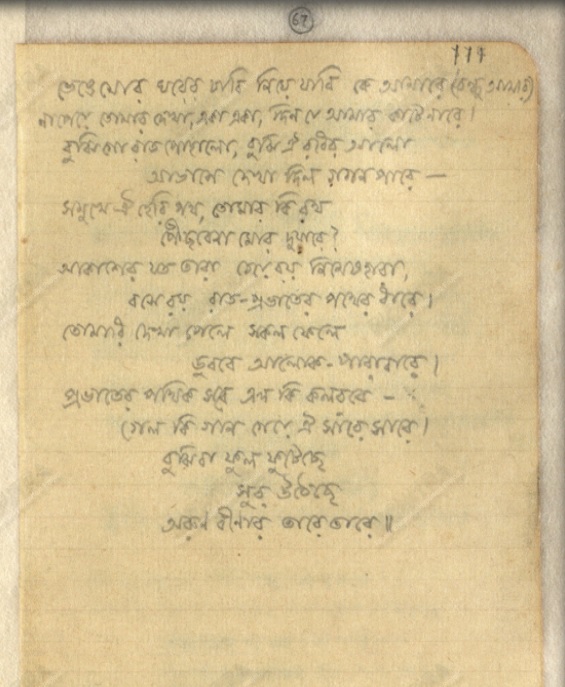 67
111
ভেঙে মোর ঘরের চাবি নিয়ে যাবি কে আমারে (বন্ধু আমার)
না পেয়ে তোমার দেখা, একা একা, দিন যে আমার কাটে নারে।
বুঝি গো রাত পোহালো, বুঝি ঐ রবির আলো
আভাসে দেখা দিল গগন পারে —
সমুখে ঐ হেরি পথ, তোমার কি রথ
পৌঁছবেনা মোর দুয়ারে?
আকাশের যত তারা চেয়ে রয় নিমেষহারা,
বসে রয় রাত-প্রভাতের পথের ধারে।
তোমারি দেখা পেলে সকল ফেলে
ডুববে আলোক-পারাবারে।
প্রভাতের পথিক সবে এল কি কলরবে —
গেল কি গান গেয়ে ঐ সারে সারে।
বুঝিবা ফুল ফুটেছে
সুর উঠেছে
অরুণ বীণার তারে তারে॥